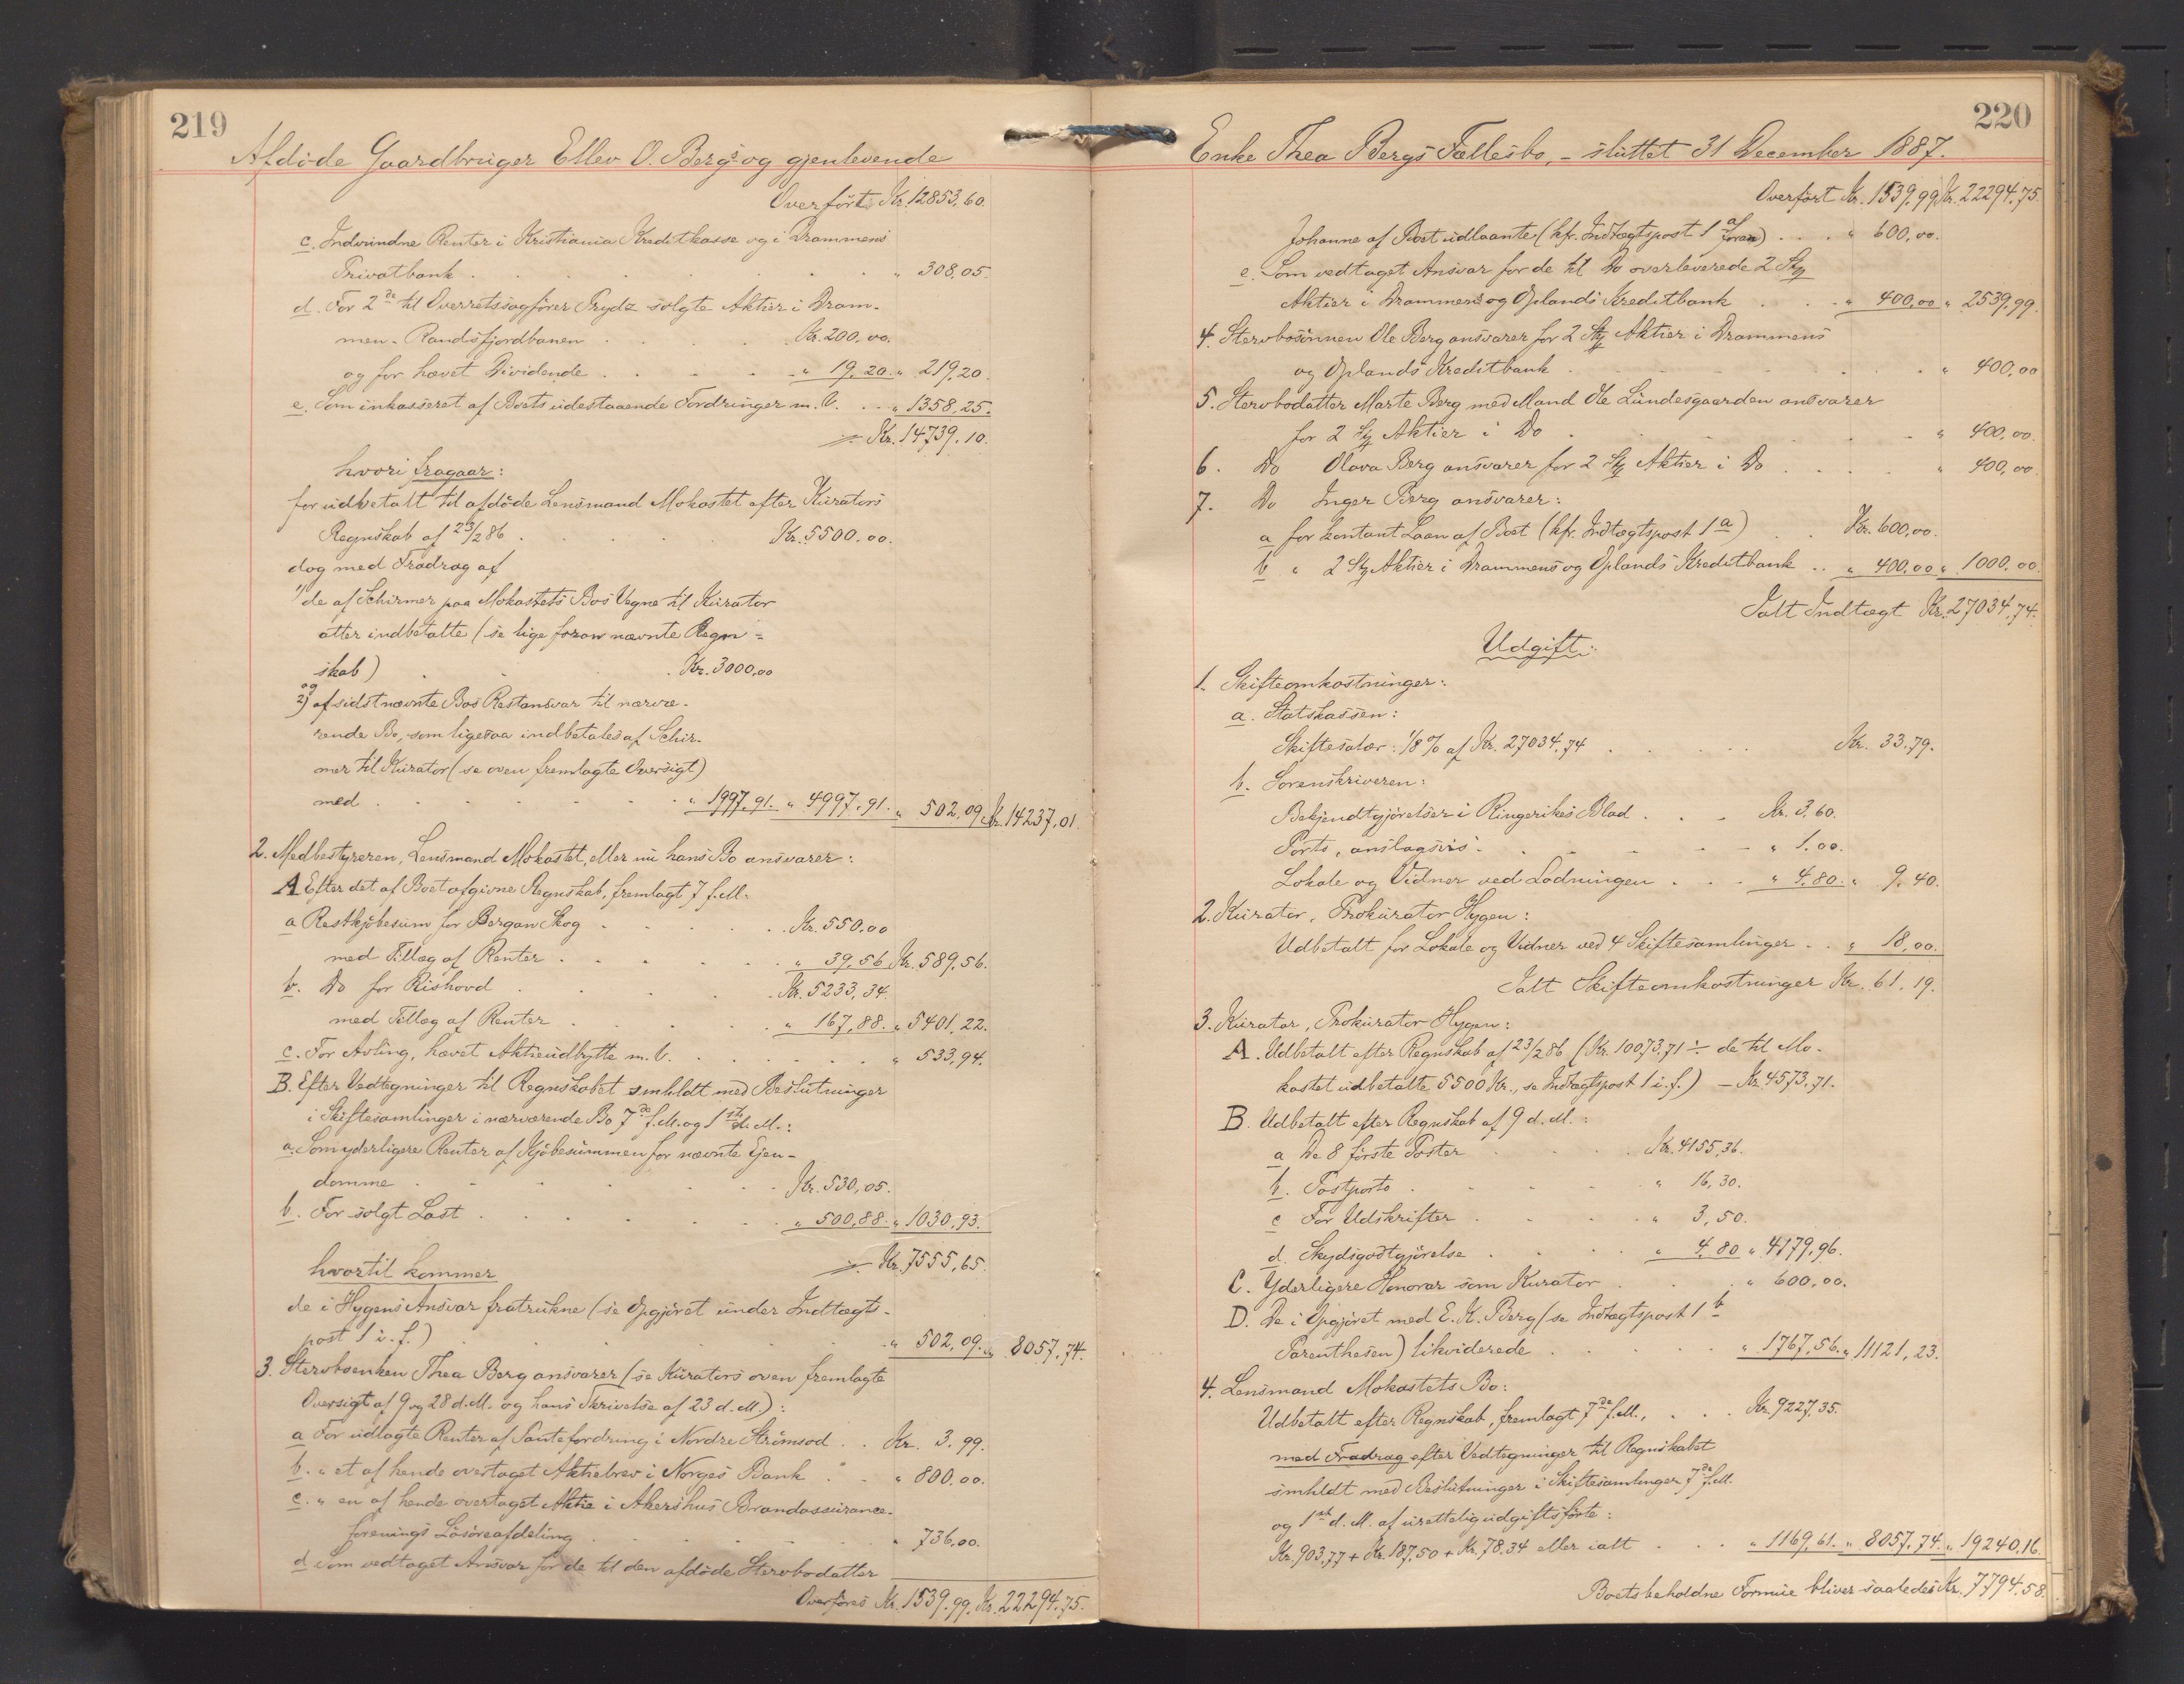 219
Afdøde Gaardbruger Ellev O. Bergs og gjenlevende
Overført Kr. 12853,60.
c. Indvundne Renter i Kristiania Kreditkasse og i Drammens
Privatbank . . . . . . . " 308,05.
d. For 2de til Overretssagfører Prydz solgte Aktier i Dram-
men-Randsfjordbanen . . . . Kr. 200,00.
og for hævet Dividende . . . . . " 19,20. " 219,20.
e. Som inkasseret af Boets udestaaende Fordringer m. V. . . " 1358,25.
Kr. 14739,10.
hvori fragaar:
for udbetalt til afdøde Lensmand Mokastet efter Kurators
Regnskab af 23/2 86 . . . . . Kr. 5500,00.
dog med Fradrag af
1) de af Schirmer paa Mokastets Bos Vegne til Kurator
atter indbetalte (se lige foran nævnte Regn-
skab) . . . . Kr. 3000,00
og
2) af sidstnævnte Bos Restansvar til nærvæ-
rende Bo, som ligesaa indbetales af Schir-
mer til Kurator (se oven fremlagte Oversigt)
med . . . . . . " 1997,91. " 4997,91. " 502,09. Kr. 14237,01.
2. Medbestyreren, Lensmand Mokastet, eller nu hans Bo ansvarer:
A Efter det af Boet afgivne Regnskab, fremlagt 7 f. M.
a Restkjøbesum for Bergan Skog . . . . . Kr. 550,00
med Tillæg af Renter . . . . . " 39,56 Kr. 589,56.
b. Do for Rishovd . . . . . Kr. 5233,34.
med Tillæg af Renter . . . . . " 167,88. " 5401,22.
c. For Avling, hævet Aktieudbytte m. V. . . . . . . " 533,94.
B. Efter Vedtegninger til Regnskabet smhldt med Beslutninger
i Skiftesamlinger i nærværende Bo 7de f. M. og 1ste d. M.:
a. Som yderligere Renter af Kjøbesummen for nævnte Ejen-
domme . . . . . . Kr. 530,05.
b. For solgt Last . . . . . . . " 500,88. " 1030,93.
Kr. 7555,65.
hvortil kommer
de i Hygens Ansvar fratrukne (se Opgjøret under Indtægts-
post 1 i. f.) . . . . . . " 502,09. " 8057,74.
3. Stervboenken Thea Berg ansvarer (se Kurators oven fremlagte
Oversigt af 9 og 28 d. M. og hans Skrivelse af 23 d. M.):
a For udlagte Renter af Pantefordring i Nordre Strømsod . . Kr. 3,99.
b. " et af hende overtaget Aktiebrev i Norges Bank . . " 800,00.
c. " en af hende overtaget Aktie i Akershus Brandassurance-
forenings Løsøreafdeling . . . . . " 736,00.
d Som vedtaget Ansvar for de til den afdøde Stervbodatter
Overføres Kr. 1539,99. Kr. 22294,75.
220
Enke Thea Bergs Fællesbo, - sluttet 31 December 1887.
Overført Kr. 1539,99 Kr. 22294,75.
Johanne af Boet udlaante (kfr. Indtægtspost 1 a foran) . . . " 600,00.
e. Som vedtaget Ansvar for de til Do overleverede 2 Stk
Aktier i Drammens og Oplands Kreditbank . . . " 400,00 " 2539,99.
4. Stervbosønnen Ole Berg ansvarer for 2 Stk Aktier i Drammens
og Oplands Kreditbank . . . . . . " 400,00
5. Stervbodatter Marte Berg med Mand Ole Lundesgaarden ansvarer
for 2 Stk Aktier i Do . . . . . " 400,00.
6. Do Olava Berg ansvarer for 2 Stk Aktier i Do . . . . " 400,00.
7. Do Inger Berg ansvarer:
a for kontant Laan af Boet (kfr. Indtægtspost 1 a) . . Kr. 600,00.
b " 2 Stk Aktier i Drammens og Oplands Kreditbank . . " 400,00 " 1000,00.
Ialt Indtægt Kr. 27034,74.
Udgift:
1. Skifteomkostninger:
a. Statskassen:
Skiftesalær: 1/8 % af Kr. 27034,74 . . . . . Kr. 33,79.
b. Sorenskriveren:
Bekjendtgjørelser i Ringerikes Blad . . . Kr. 3,60.
Porto, anslagsvis . . . . . . " 1,00.
Lokale og Vidner ved Lodningen . . . " 4,80. " 9,40.
2. Kurator, Prokurator Hygen:
Udbetalt for Lokale og Vidner ved 4 Skiftesamlinger . . " 18,00.
Ialt Skifteomkostninger Kr. 61,19.
3. Kurator, Prokurator Hygen:
A. Udbetalt efter Regnskab af 23/2 86 (Kr. 10073,71 ÷ de til Mo-
kastet udbetalte 5500 Kr., se Indtægtspost 1 i. f.) - Kr. 4573,71.
B. Udbetalt efter Regnskab af 9 d. M.:
a De 8 første Poster . . . . Kr. 4155,36.
b. Postporto . . . . . " 16,30.
c For Udskrifter . . . . . " 3,50.
d. Skydsgodtgjørelse . . . . " 4,80 " 4179,96.
C. Yderligere Honorar som Kurator . . . " 600,00.
D. De i Opgjøret med E. K. Berg (se Indtægtspost 1 b
Parenthesen) likviderede . . . . . " 1767,56. " 11121,23.
4. Lensmand Mokastets Bo:
Udbetalt efter Regnskab, fremlagt 7de f. M., . . . Kr. 9227,35.
med Fradrag efter Vedtegninger til Regnskabet
smhldt med Beslutninger i Skiftesamlinger 7de f. M.
og 1ste d. M. af urettelig udgiftsførte:
Kr. 903,77 + Kr. 187,50 + Kr. 78,34 eller ialt . . . " 1169,61. " 8057,74. " 19240,16.
Boets beholdne Formue bliver saaledes Kr. 7794,58.